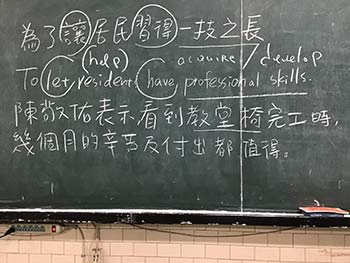 為了讓居民習得一技之長
(help) acquire / develop
To let residents have professional skills.
陳敬佑表示,看到教堂椅完工時,
幾個月的辛苦及付出都值得。